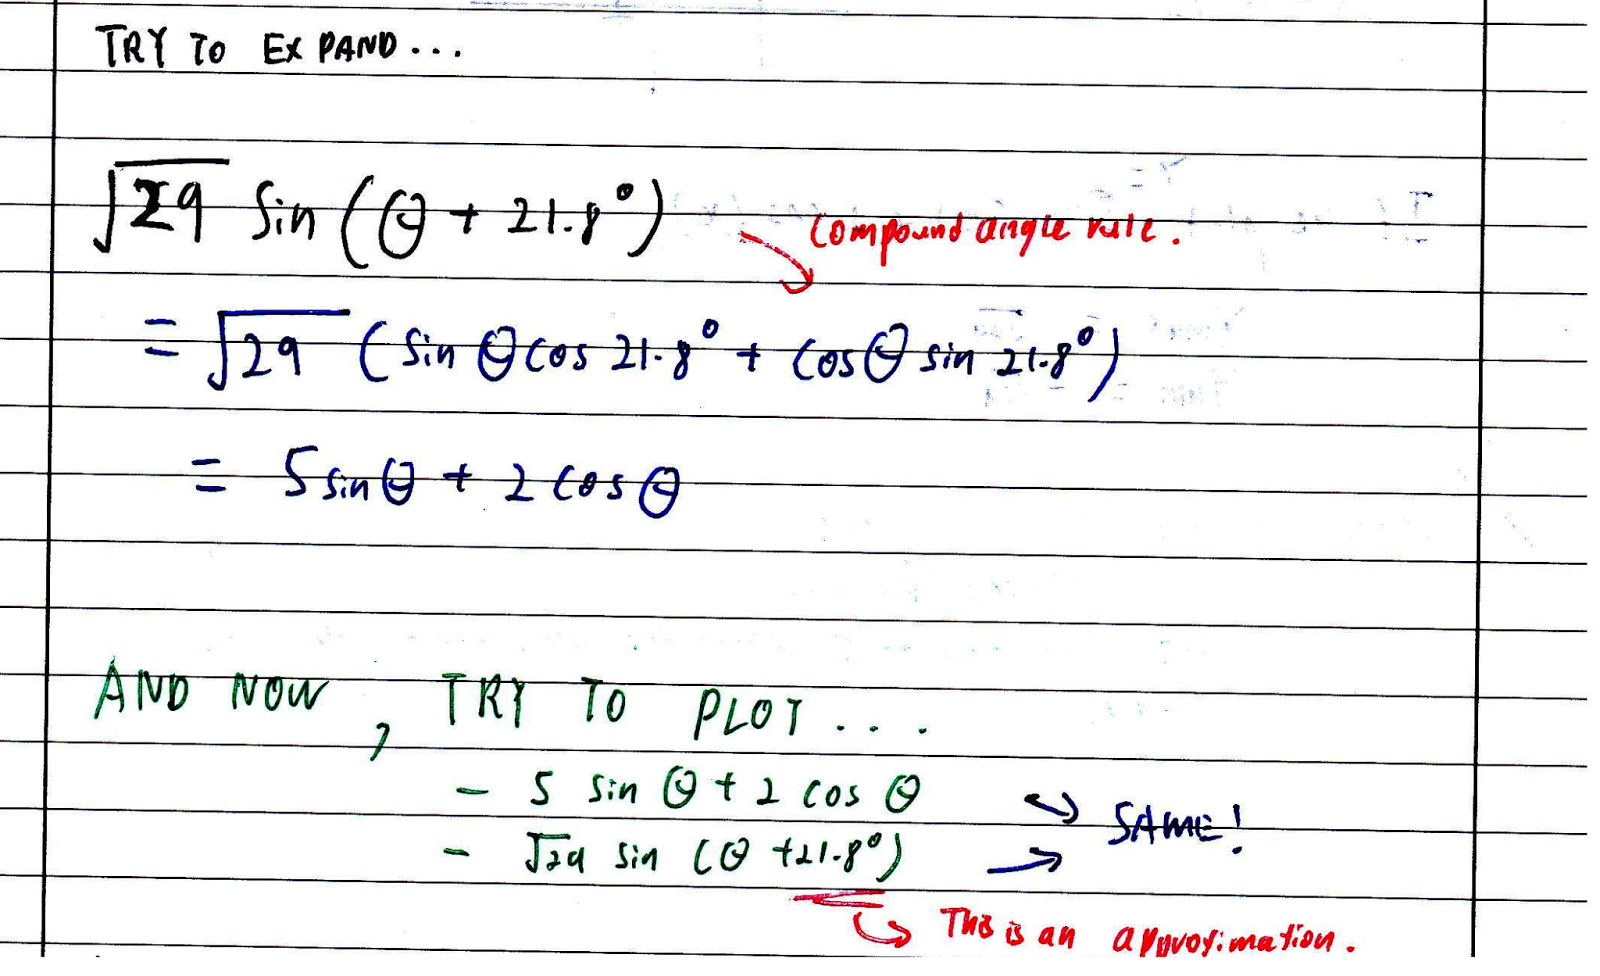 TRY TO EXPAND...
√29 sin (θ + 21.8°)
compound angle rule.
= √29 (sin θ cos 21.8° + cos θ sin 21.8°)
= 5 sin θ + 2 cos θ
AND NOW, TRY TO PLOT....
- 5 sin θ + 2 cos θ
- √29 sin (θ +21.8°)
SAME!
This is an approximation.